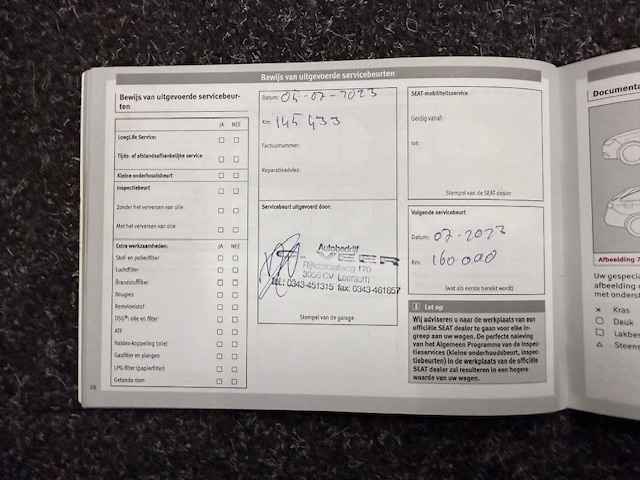 Bewijs van uitgevoerde servicebeurten
Bewijs van uitgevoerde servicebeur-
ten
JA NEE
LongLife Service:
Tijds- of afstandsafhankelijke service
Kleine onderhoudsbeurt
Inspectiebeurt
Zonder het verversen van olie
Met het verversen van olie
Extra werkzaamheden: JA NEE
Stof- en pollenfilter
Luchtfilter
Brandstoffilter
Bougies
Remvloeistof
DSG®: olie en filter
ATF
Haldex-koppeling (olie)
Gasfilter en slangen
LPG-filter (papierfilter)
Getande riem
Datum: 05-07-2023
Km: 145 433
Factuurnummer:
Reparatieadvies:
Servicebeurt uitgevoerd door:
Autobedrijf
VEER
Rijksstraatweg 170
TEL: 0343-451315 fax: 0343-461657
Stempel van de garage
SEAT-mobiliteitsservice
Geldig vanaf:
tot:
Stempel van de SEAT dealer
Volgende servicebeurt
Datum: 07-2023
Km: 160 000
(wat als eerste bereikt wordt)
i Let op
Wij adviseren u naar de werkplaats van een
officiële SEAT dealer te gaan voor elke in-
greep aan uw wagen. De perfecte naleving
van het Algemeen Programma van de Inspec-
tieservices (kleine onderhoudsbeurt, inspec-
tiebeurten) in de werkplaats van de officiële
SEAT dealer zal resulteren in een hogere
waarde van uw wagen.
Documenta
Afbeelding 7
Uw gespecial
afbeelding
met onderst
× Kras
Deuk
Lakbes
△ Steens